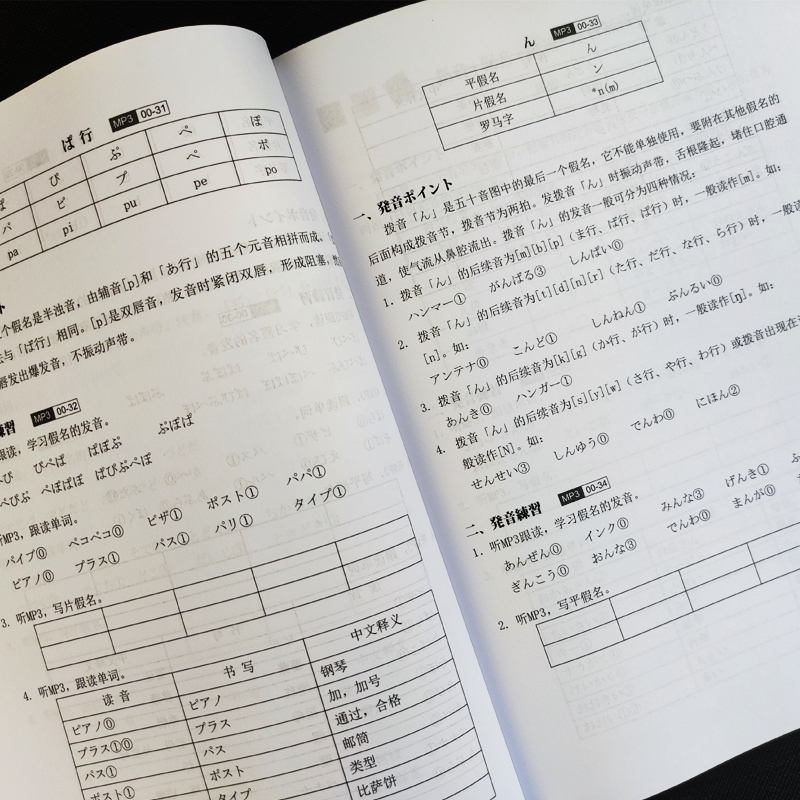 ぱ行 MP3 00-31
ぱ ぴ ぷ ぺ ぽ
パ ピ プ ペ ポ
pa pi pu pe po
个假名是半浊音，由辅音[p]和「あ行」的五个元音相拼而成。
法与「ば行」相同。[p]是双唇音，发音时紧闭双唇，形成阻塞，
唇发出爆发音，不振动声带。
練習 MP3 00-32
跟读，学习假名的发音。
ぺぴ ぴぺぱ ぱぽぷ ぷぽぱ
ぺぴぷ ぺぽぱぽ ぱぴぷぺぽ
听MP3，跟读单词。
パイプ⓪ ペコペコ⓪ ピザ① ポスト① パパ①
ピアノ⓪ プラス① パス① パリ① タイプ①
3. 听MP3，写片假名。
4. 听MP3，跟读单词。
读音 书写 中文释义
ピアノ⓪ ピアノ 钢琴
プラス①⓪ プラス 加，加号
パス① パス 通过，合格
ポスト① ポスト 邮筒
タイプ 类型
比萨饼
ん MP3 00-33
平假名 ん
片假名 ン
罗马字 *n(m)
一、発音ポイント
拨音「ん」是五十音图中的最后一个假名，它不能单独使用，要附在其他假名的
后面构成拨音节，拨音节为两拍。发拨音「ん」时振动声带，舌根隆起，堵住口腔通
道，使气流从鼻腔流出。拨音「ん」的发音一般可分为四种情况：
1. 拨音「ん」的后续音为[m][b][p]（ま行、ば行、ぱ行）时，一般读作[m]。如：
ハンマー① がんばる③ しんぱい⓪
2. 拨音「ん」的后续音为[t][d][n][r]（た行、だ行、な行、ら行）时，一般读
[n]。如：
アンテナ⓪ こんど① しんねん① ぶんるい⓪
3. 拨音「ん」的后续音为[k][g]（か行、が行）时，一般读作[ŋ]。如：
あんき⓪ ハンガー①
4. 拨音「ん」的后续音为[s][y][w]（さ行、や行、わ行）或拨音出现在
般读作[N]。如：
せんせい③ しんゆう⓪ でんわ⓪ にほん②
二、発音練習 MP3 00-34
1. 听MP3跟读，学习假名的发音。
あんぜん⓪ インク⓪ みんな③ げんき①
ぎんこう⓪ おんな③ でんわ⓪ まんが⓪
2. 听MP3，写平假名。